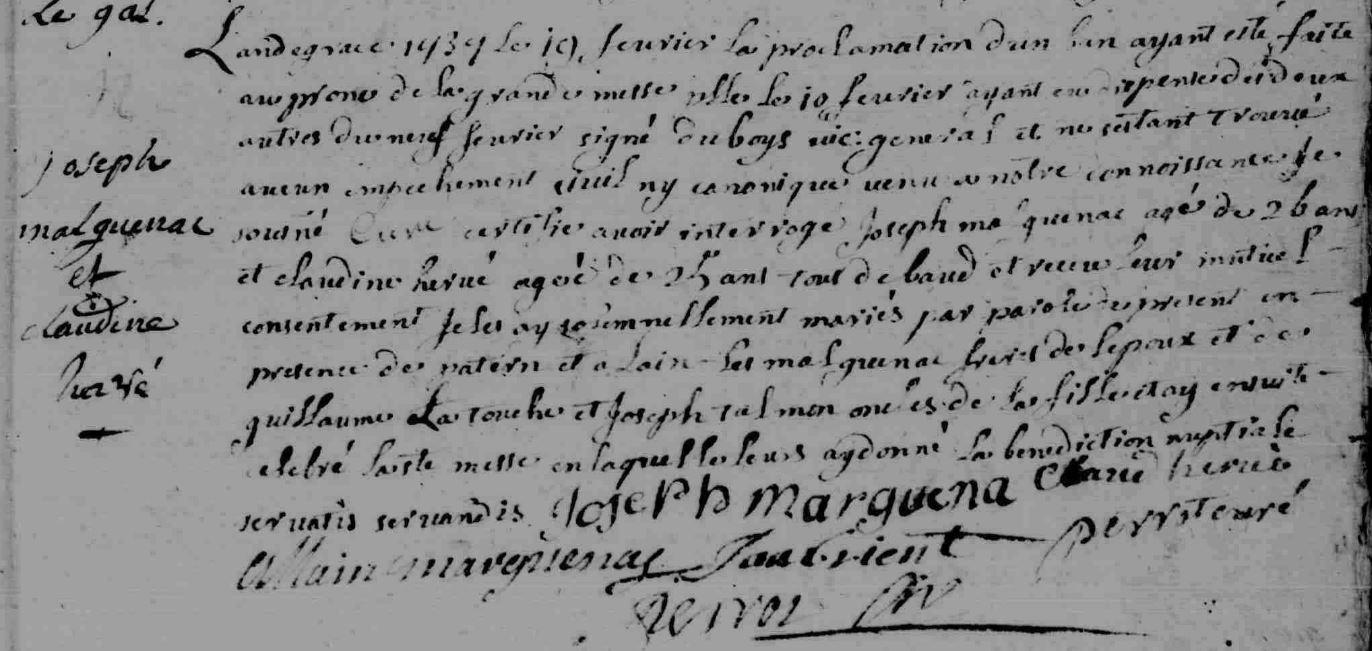 le gal.
Joseph
malquenac
et
claudine
hervé
Landegrace 1737 le 19, fevrier la proclamation d'un ban ayant esté faite
au prone de la grande messe le 10 fevrier ayant eu dispense des deux
autres du neuf fevrier signé duboys vic: general et ne s'estant trouvé
aucun empechement civil ny canonique venu a nôtre connoissance Je
sousné Curé certifie avoir interrogé Joseph malquenac agé de 26 ans
et claudine hervé ageé de 25 ans tout de baud et receu leur mutuel
consentement Je les ay solemnellement mariés par parole de present en
presence de patern et alain les malquenac freres de lepoux et de
guillaume La touche et Joseph talmon oncles de la fille et ay ensuite
celebré la ste messe en laquelle leurs ay donné la benediction nuptiale
servatis servandis Joseph Marquena Claud hervé
Allain marquenac